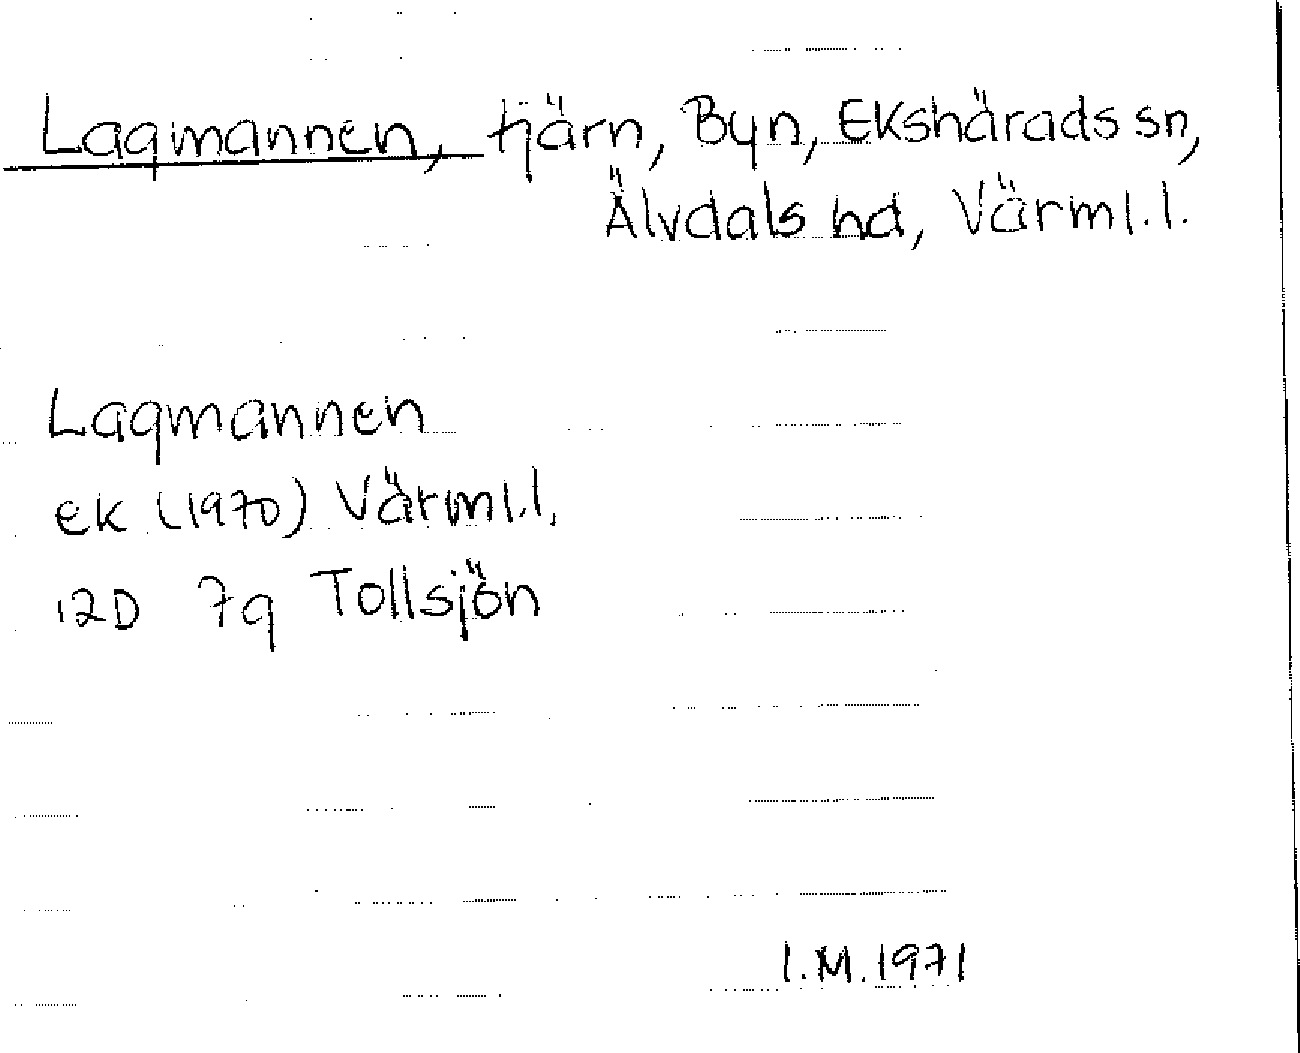 Lagmannen, tjärn, Byn, Ekshärads sn,
Älvdals hd, Värml.l.
Lagmannen
ek (1970) Värml.l.
12D 7g Tollsjön
I.M. 1971